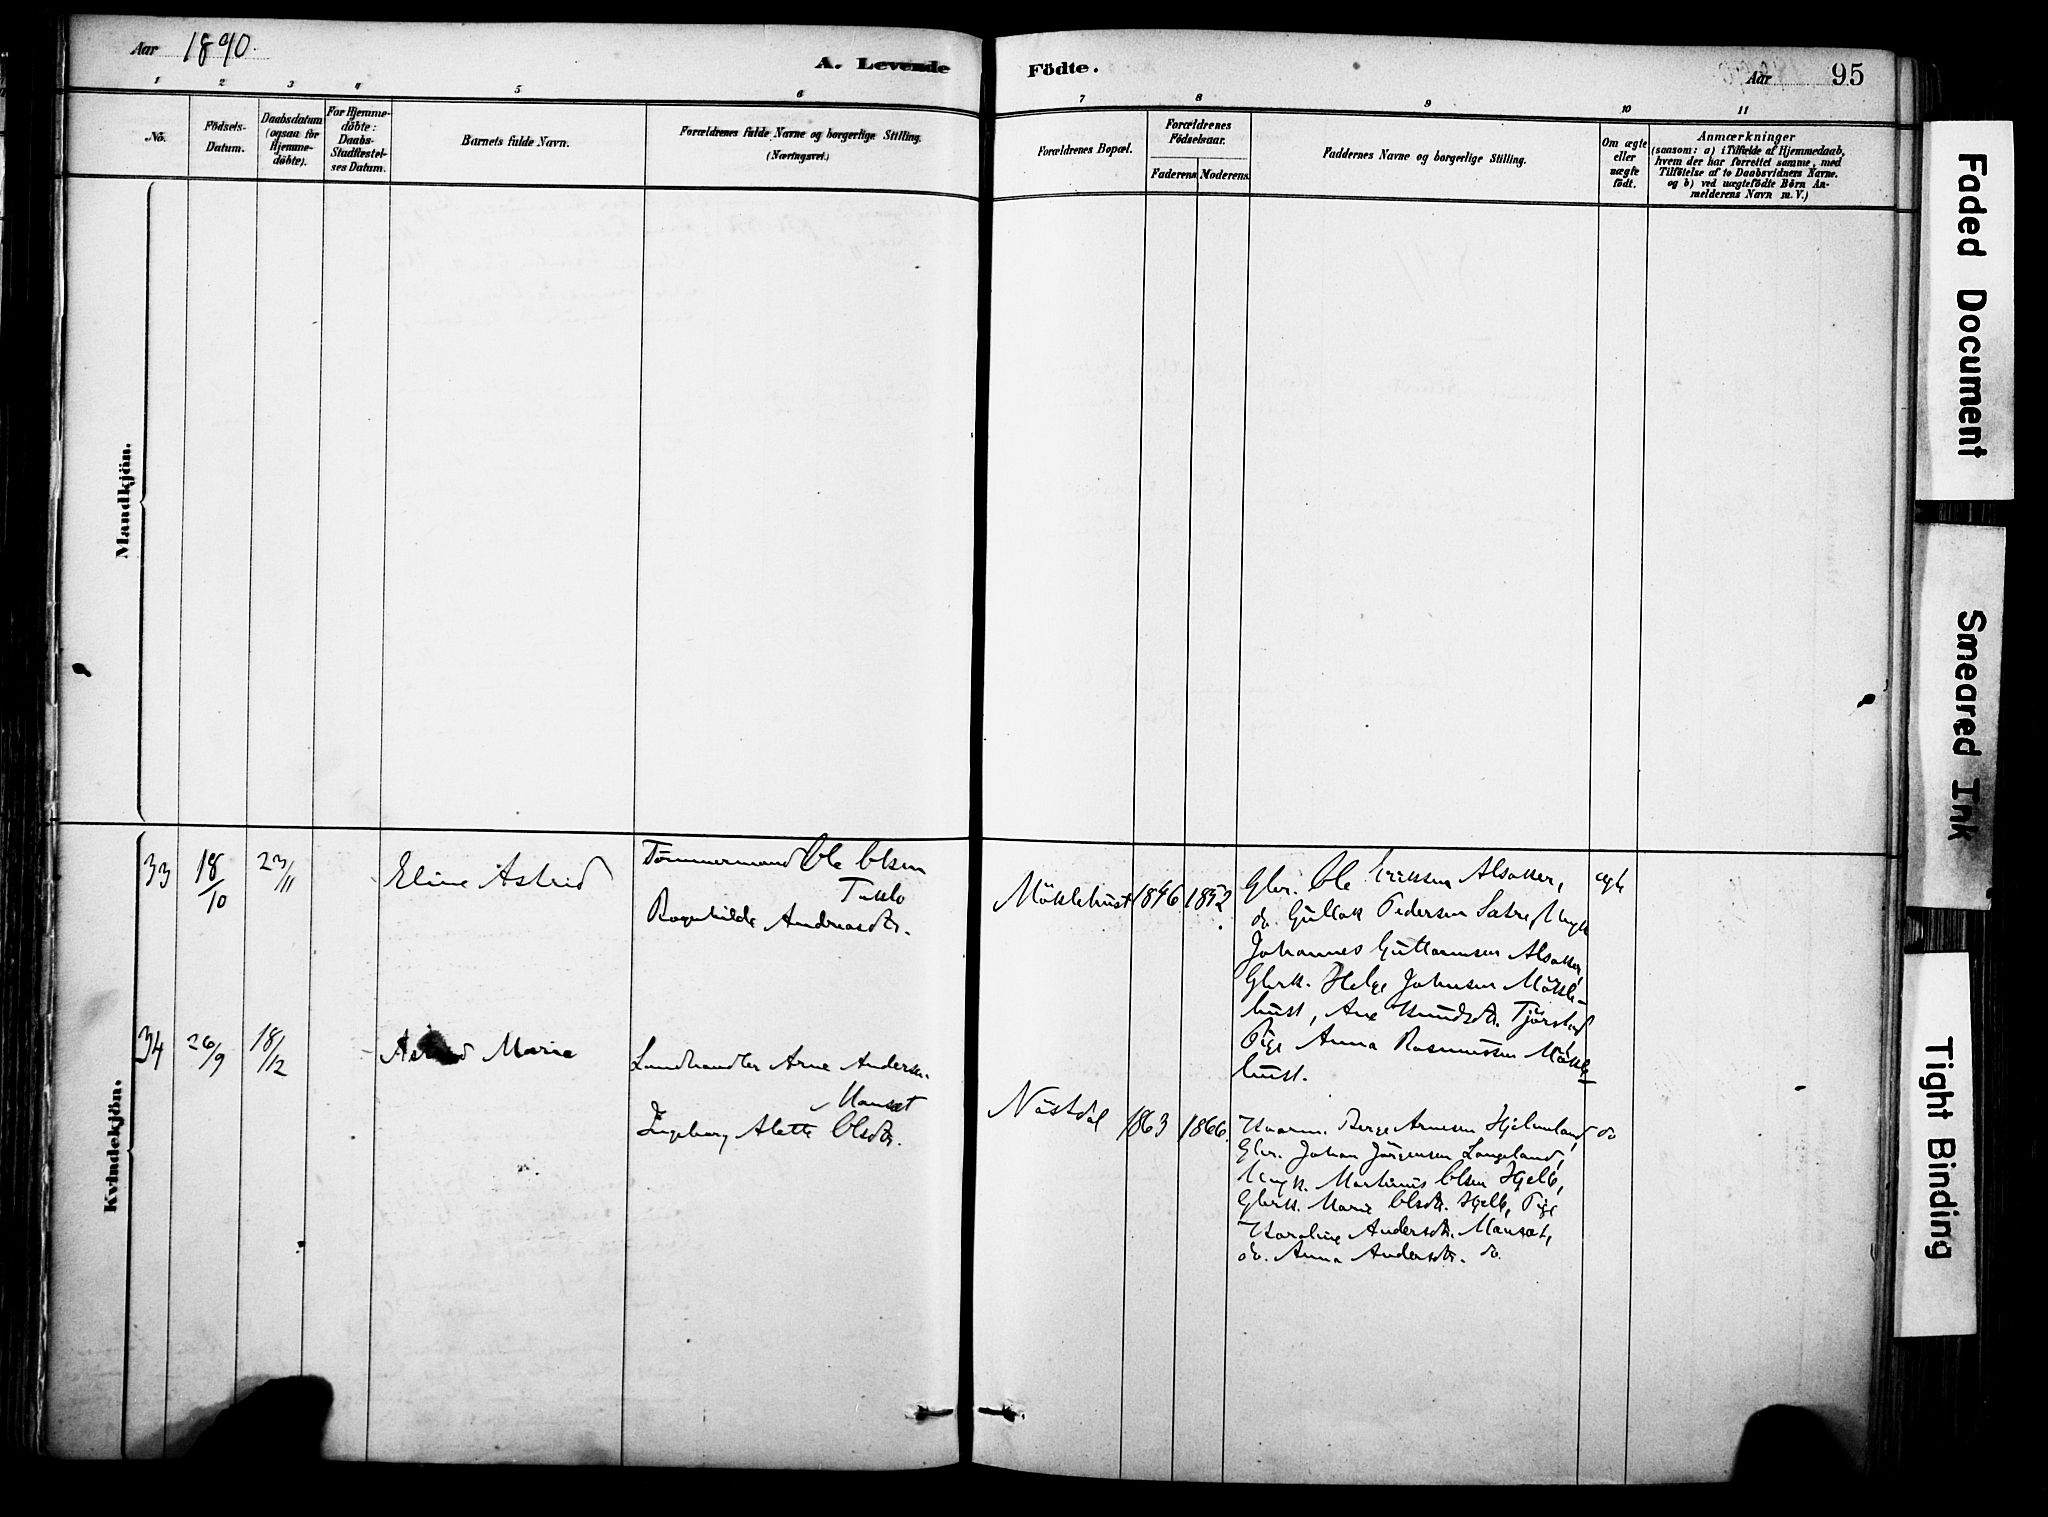 Aar 1890.
A. Levende Födte.
Aar 95
1 2 3 4 5 6 7 8 9 10 11
No.
Födsels-
Datum.
Daabsdatum
(ogsaa for
Hjemme-
döbte).
For Hjemme-
döbte:
Daabs-
Stadfæstel-
ses Datum.
Barnets fulde Navn.
Forældrenes fulde Navne og borgerlige Stilling.
(Næringsvei.)
Forældrenes Bopæl.
Forældrenes
Födselsaar.
Faderens. Moderens.
Faddernes Navne og borgerlige Stilling.
Om ægte
eller
uægte
födt.
Anmærkninger
(saasom: a) i Tilfælde af Hjemmedaab,
hvem der har forrettet samme, med
Tilföielse af to Daabsvidners Navne.
og b) ved uægtefödte Börn An-
melderens Navn m. V.)
Mandkjön.
Kvindekjön.
33 18/10 23/11
Eline Astrid
Tömmermand Ole Olsen
Taklo
Ragnhilda Andreasdtr.
Möklebust 1846 1852.
Gbr. Ole Eriksen Alsaker,
do. Gullak Pedersen Sætre, Ungk
Johannes Guttormsen Alsaker,
Gbrk. Helge Johnsen Mökle-
bust, Ane Knudsdtr. Tjörstad
Pige Anna Rasmussen Mökle-
bust.
ægte
34 26/9 18/12
Astrid Marie
Landhandler Arne Andersen
Mansæt
Ingeborg Alette Olsdtr.
Nöstdal 1863 1866.
Kaarm. Berge Arnesen Hjelmeland
Gbr. Johan Jörgensen Langeland,
Ungk. Martinus Olsen Hjelle,
Gbrk. Marie Olsdtr. Hjelle, Pige
Karoline Andersdtr. Mansæt,
do. Anna Andersdtr. do
do
Faded Document
Smeared Ink
Tight Binding